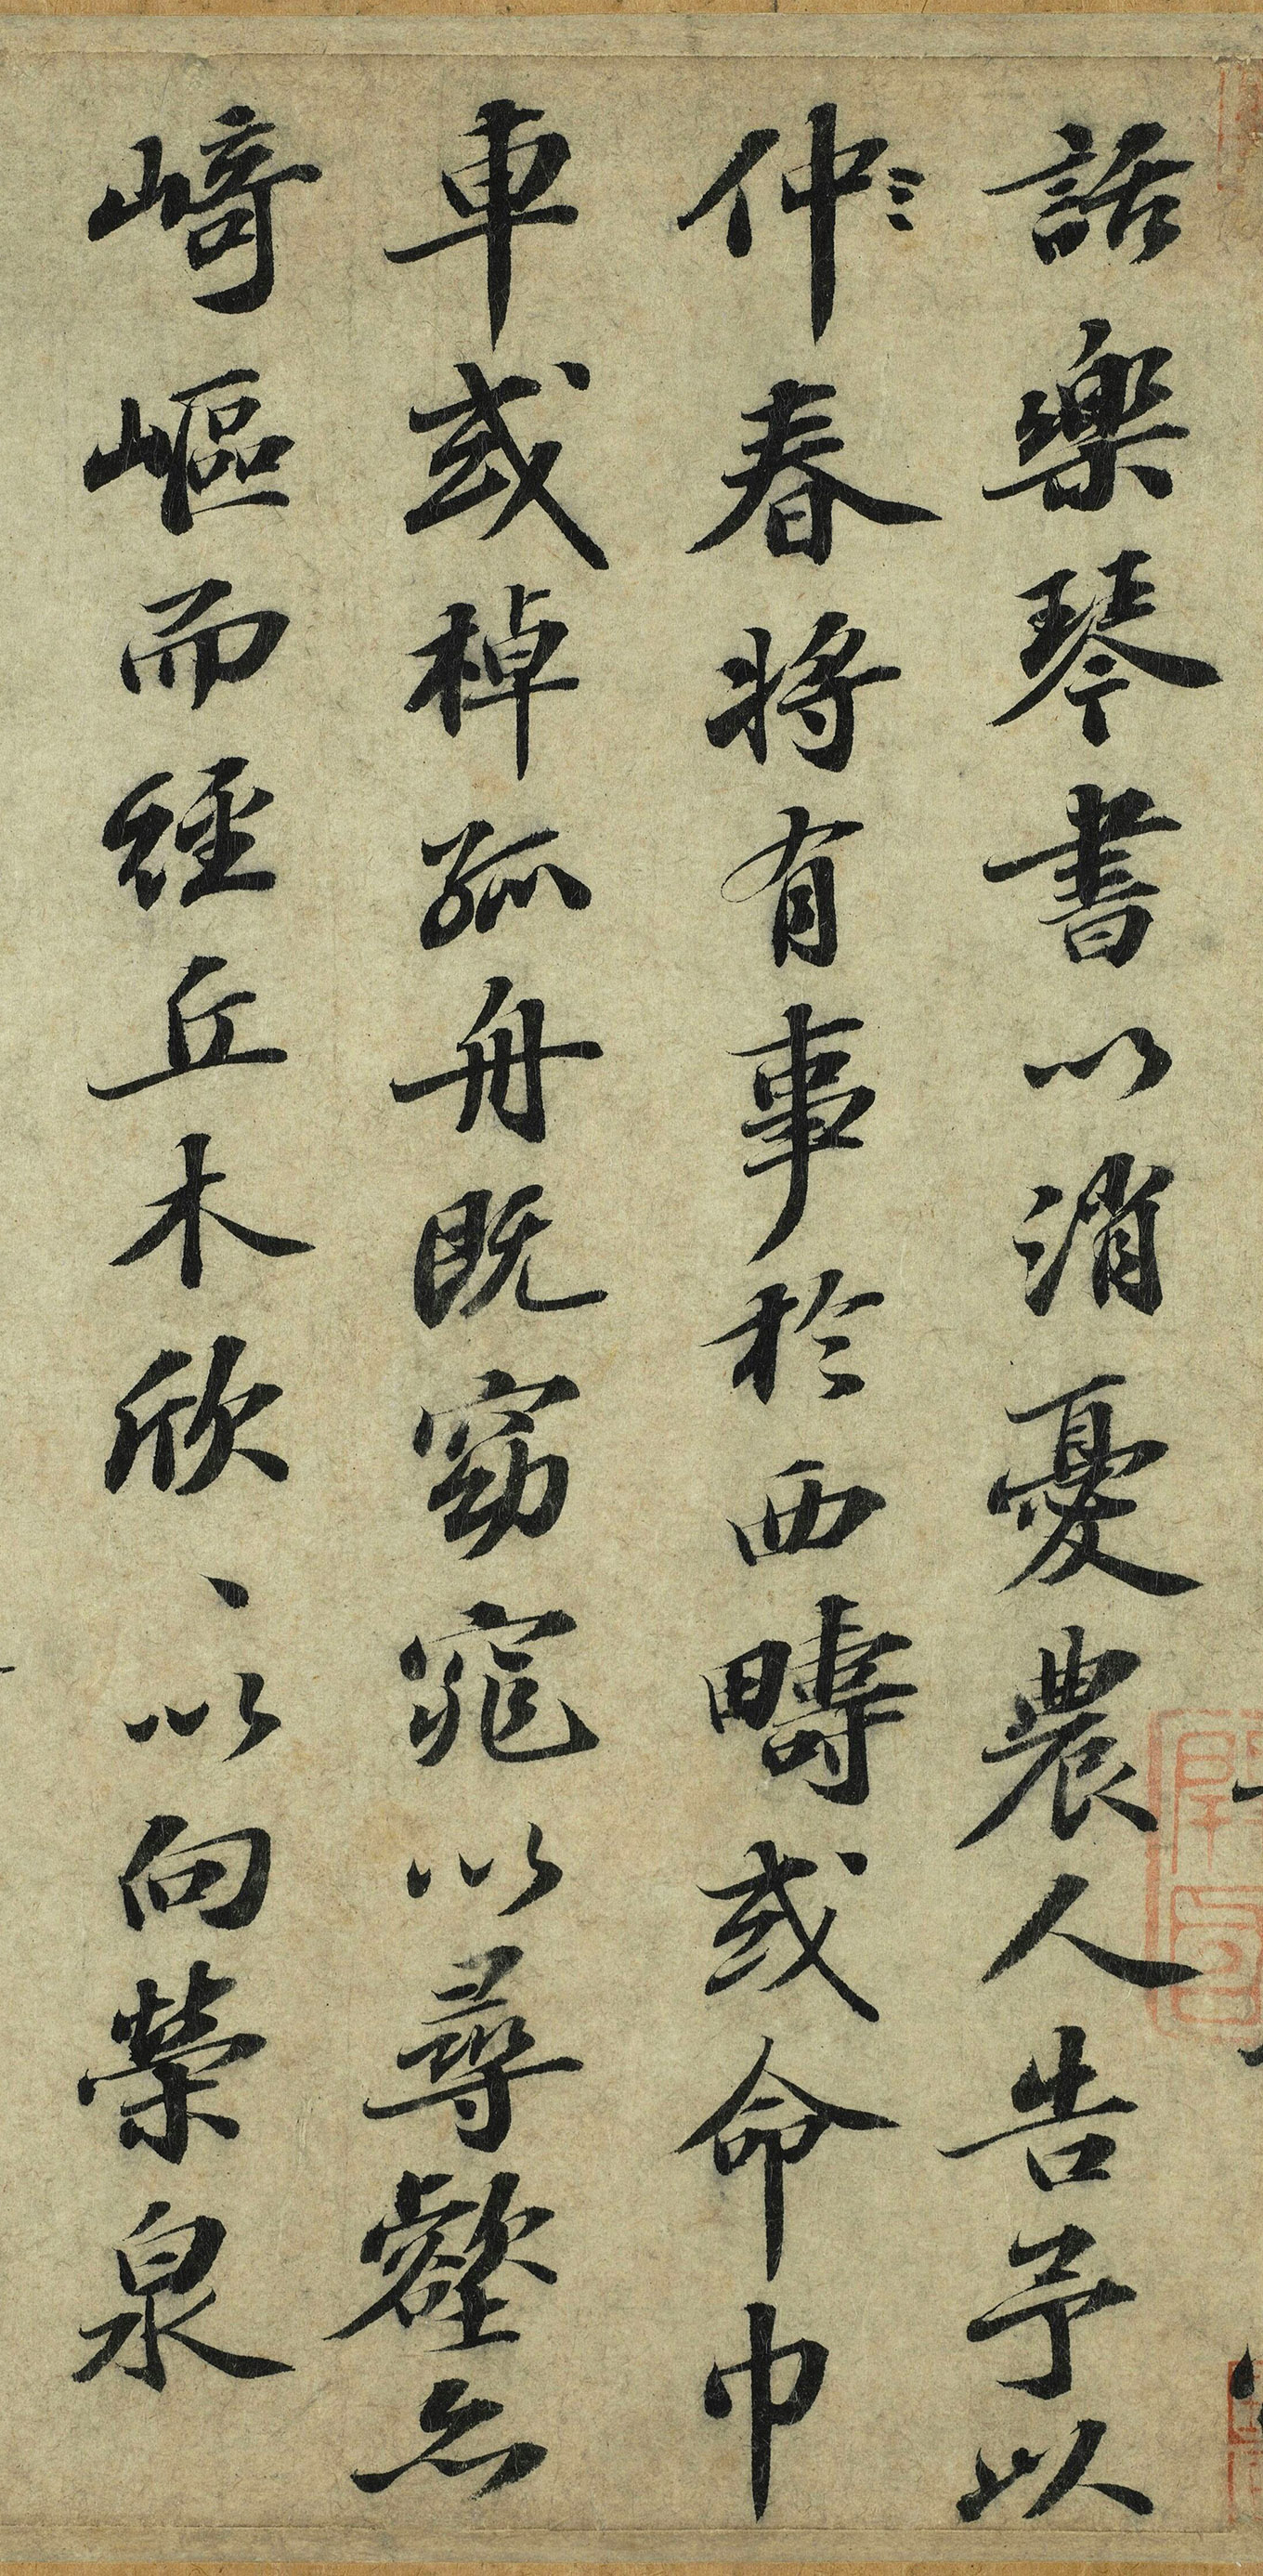 話樂琴書以消憂農人告予以
仲春將有事於西疇或命巾
車或棹孤舟既窈窕以尋壑亦
崎嶇而經丘木欣、以向榮泉